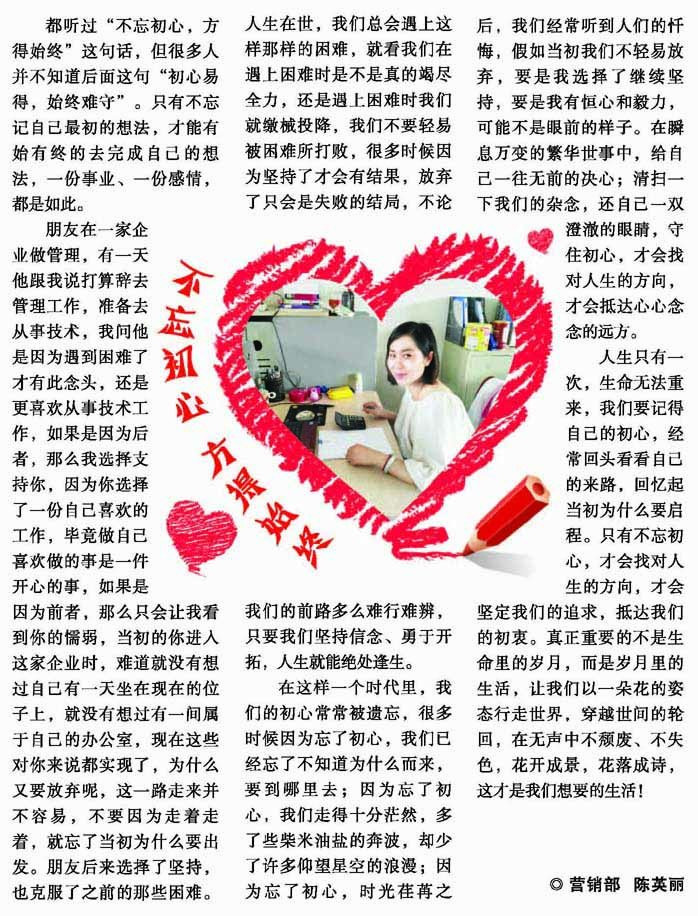 都听过“不忘初心，方
得始终”这句话，但很多人
并不知道后面这句“初心易
得，始终难守”。只有不忘
记自己最初的想法，才能有
始有终的去完成自己的想
法，一份事业、一份感情，
都是如此。
朋友在一家企
业做管理，有一天
他跟我说打算辞去
管理工作，准备去
从事技术，我问他
是因为遇到困难了
才有此念头，还是
更喜欢从事技术工
作，如果是因为后
者，那么我选择支
持你，因为你选择
了一份自己喜欢的
工作，毕竟做自己
喜欢做的事是一件
开心的事，如果是
因为前者，那么只会让我看
到你的懦弱，当初的你进入
这家企业时，难道就没有想
过自己有一天坐在现在的位
子上，就没有想过有一间属
于自己的办公室，现在这些
对你来说都实现了，为什么
又要放弃呢，这一路走来并
不容易，不要因为走着走
着，就忘了当初为什么要出
发。朋友后来选择了坚持，
也克服了之前的那些困难。
人生在世，我们总会遇上这
样那样的困难，就看我们在
遇上困难时是不是真的竭尽
全力，还是遇上困难时我们
就缴械投降，我们不要轻易
被困难所打败，很多时候因
为坚持了才会有结果，放弃
了只会是失败的结局，不论
不忘初心 方得始终
我们的前路多么难行难辨，
只要我们坚持信念、勇于开
拓，人生就能绝处逢生。
在这样一个时代里，我
们的初心常常被遗忘，很多
时候因为忘了初心，我们已
经忘了不知道为什么而来，
要到哪里去；因为忘了初
心，我们走得十分茫然，多
了些柴米油盐的奔波，却少
了许多仰望星空的浪漫；因
为忘了初心，时光荏苒之
后，我们经常听到人们的忏
悔，假如当初我们不轻易放
弃，要是我选择了继续坚
持，要是我有恒心和毅力，
可能不是眼前的样子。在瞬
息万变的繁华世事中，给自
己一往无前的决心；清扫一
下我们的杂念，还自己一双
澄澈的眼睛，守
住初心，才会找
对人生的方向，
才会抵达心心念
念的远方。
人生只有一
次，生命无法重
来，我们要记得
自己的初心，经
常回头看看自己
的来路，回忆起
当初为什么要启
程。只有不忘初
心，才会找对人
生的方向，才会
坚定我们的追求，抵达我们
的初衷。真正重要的不是生
命里的岁月，而是岁月里的
生活，让我们以一朵花的姿
态行走世界，穿越世间的轮
回，在无声中不颓废、不失
色，花开成景，花落成诗，
这才是我们想要的生活！
◎ 营销部 陈英丽